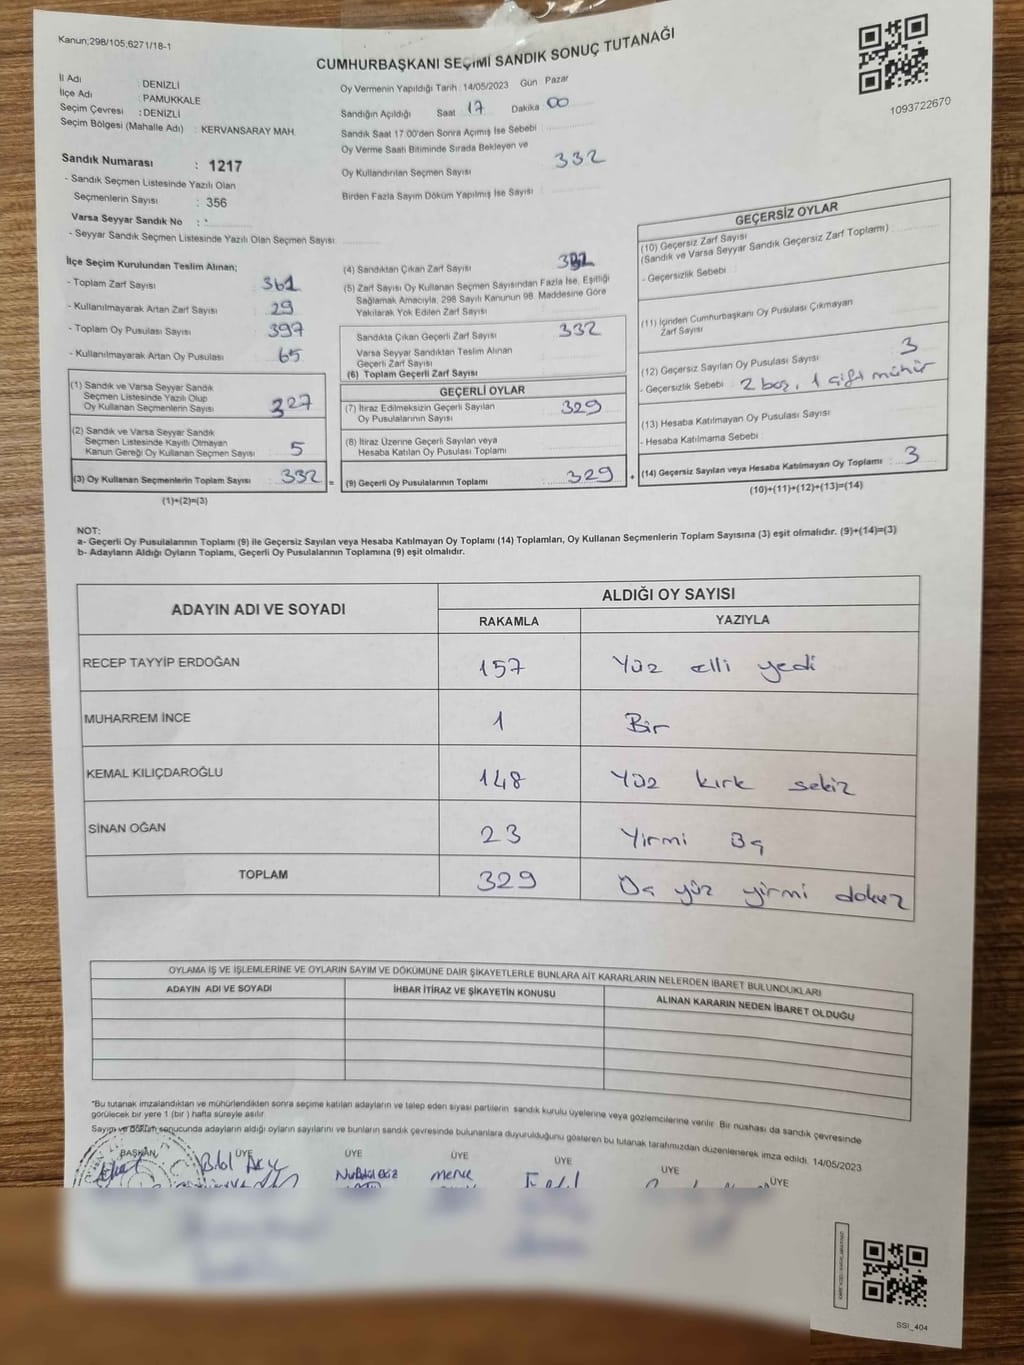 Kanun;298/105;6271/18-1
CUMHURBAŞKANI SEÇİMİ SANDIK SONUÇ TUTANAĞI
1093722670
İl Adı : DENİZLİ
İlçe Adı : PAMUKKALE
Seçim Çevresi : DENİZLİ
Seçim Bölgesi (Mahalle Adı) : KERVANSARAY MAH.
Sandık Numarası : 1217
- Sandık Seçmen Listesinde Yazılı Olan
Seçmenlerin Sayısı : 356
Varsa Seyyar Sandık No :
- Seyyar Sandık Seçmen Listesinde Yazılı Olan Seçmen Sayısı:
Oy Vermenin Yapıldığı Tarih : 14/05/2023 Gün Pazar
Sandığın Açıldığı Saat 17 Dakika 00
Sandık Saat 17:00'den Sonra Açımış İse Sebebi :
Oy Verme Saati Bitiminde Sırada Bekleyen ve
Oy Kullandırılan Seçmen Sayısı 332
Birden Fazla Sayım Döküm Yapılmış İse Sayısı :
İlçe Seçim Kurulundan Teslim Alınan;
- Toplam Zarf Sayısı : 361
- Kullanılmayarak Artan Zarf Sayısı : 29
- Toplam Oy Pusulası Sayısı : 397
- Kullanılmayarak Artan Oy Pusulası : 65
(1) Sandık ve Varsa Seyyar Sandık
Seçmen Listesinde Yazılı Olup
Oy Kullanan Seçmenlerin Sayısı : 327
(2) Sandık ve Varsa Seyyar Sandık
Seçmen Listesinde Kayıtlı Olmayan
Kanun Gereği Oy Kullanan Seçmen Sayısı : 5
(3) Oy Kullanan Seçmenlerin Toplam Sayısı : 332 =
(1)+(2)=(3)
(4) Sandıktan Çıkan Zarf Sayısı : 332
(5) Zarf Sayısı Oy Kullanan Seçmen Sayısından Fazla İse, Eşitliği
Sağlamak Amacıyla, 298 Sayılı Kanunun 98. Maddesine Göre
Yakılarak Yok Edilen Zarf Sayısı :
Sandıkta Çıkan Geçerli Zarf Sayısı : 332
Varsa Seyyar Sandıktan Teslim Alınan
Geçerli Zarf Sayısı :
(6) Toplam Geçerli Zarf Sayısı :
GEÇERLİ OYLAR
(7) İtiraz Edilmeksizin Geçerli Sayılan
Oy Pusulalarının Sayısı : 329
(8) İtiraz Üzerine Geçerli Sayılan veya
Hesaba Katılan Oy Pusulası Toplamı :
(9) Geçerli Oy Pusulalarının Toplamı : 329 +
GEÇERSİZ OYLAR
(10) Geçersiz Zarf Sayısı
(Sandık ve Varsa Seyyar Sandık Geçersiz Zarf Toplamı) :
- Geçersizlik Sebebi :
(11) İçinden Cumhurbaşkanı Oy Pusulası Çıkmayan
Zarf Sayısı :
(12) Geçersiz Sayılan Oy Pusulası Sayısı : 3
- Geçersizlik Sebebi : 2 boş, 1 çift mühür
(13) Hesaba Katılmayan Oy Pusulası Sayısı :
- Hesaba Katılmama Sebebi :
(14) Geçersiz Sayılan veya Hesaba Katılmayan Oy Toplamı : 3
(10)+(11)+(12)+(13)=(14)
NOT:
a- Geçerli Oy Pusulalarının Toplamı (9) ile Geçersiz Sayılan veya Hesaba Katılmayan Oy Toplamı (14) Toplamları, Oy Kullanan Seçmenlerin Toplam Sayısına (3) eşit olmalıdır. (9)+(14)=(3)
b- Adayların Aldığı Oyların Toplamı, Geçerli Oy Pusulalarının Toplamına (9) eşit olmalıdır.
ADAYIN ADI VE SOYADI ALDIĞI OY SAYISI
RAKAMLA YAZIYLA
RECEP TAYYİP ERDOĞAN 157 Yüz elli yedi
MUHARREM İNCE 1 Bir
KEMAL KILIÇDAROĞLU 148 Yüz kırk sekiz
SİNAN OĞAN 23 Yirmi Üç
TOPLAM 329 Üç yüz yirmi dokuz
OYLAMA İŞ VE İŞLEMLERİNE VE OYLARIN SAYIM VE DÖKÜMÜNE DAİR ŞİKAYETLERLE BUNLARA AİT KARARLARIN NELERDEN İBARET BULUNDUKLARI
ADAYIN ADI VE SOYADI İHBAR İTİRAZ VE ŞİKAYETİN KONUSU ALINAN KARARIN NEDEN İBARET OLDUĞU
*Bu tutanak imzalandıktan ve mühürlendikten sonra seçime katılan adayların ve talep eden siyasi partilerin sandık kurulu üyelerine veya gözlemcilerine verilir. Bir nüshası da sandık çevresinde
görülecek bir yere 1 (bir) hafta süreyle asılır.
Sayım ve döküm sonucunda adayların aldığı oyların sayılarını ve bunların sandık çevresinde bulunanlara duyurulduğunu gösteren bu tutanak tarafımızdan düzenlenerek imza edildi. 14/05/2023
BAŞKAN ÜYE ÜYE ÜYE ÜYE ÜYE ÜYE
SSI_404